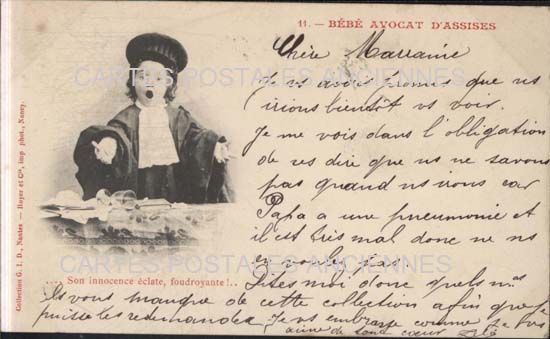 11. — BÉBÉ AVOCAT D'ASSISES
Chère Marraine
Je vs avais promis que ns
irions bientôt vs voir.
Je me vois dans l'obligation
de vs dire que ns ne savons
pas quand ns irons car
Papa a une pneumonie et
il est très mal donc ne ns
attendez pas.
Dites moi donc quels nos
ils vous manque de cette collection afin que je
puisse les redemander. Je vs embrasse comme je vs
aime de tout coeur
.... Son innocence éclate, foudroyante !..
Collection G. I. D., Nantes — Royer et Cie, imp. phot., Nancy.
CARTES POSTALES ANCIENNES
CARTES POSTALES ANCIENNES